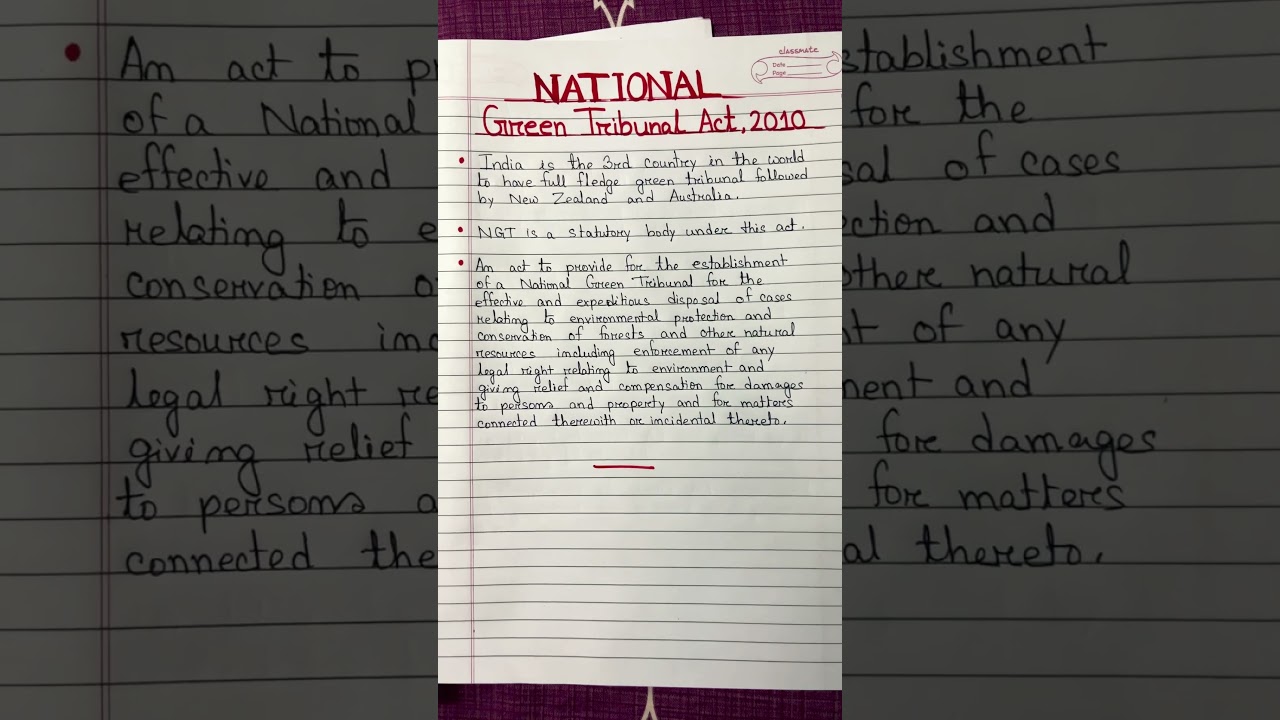 classmate
Date
Page
NATIONAL
Green Tribunal Act, 2010
India is the 3rd country in the world
to have full fledge green tribunal followed
by New Zealand and Australia.
NGT is a statutory body under this act.
An act to provide for the establishment
of a National Green Tribunal for the
effective and expeditious disposal of cases
relating to environmental protection and
conservation of forests and other natural
resources including enforcement of any
legal right relating to environment and
giving relief and compensation for damages
to persons and property and for matters
connected therewith or incidental thereto.